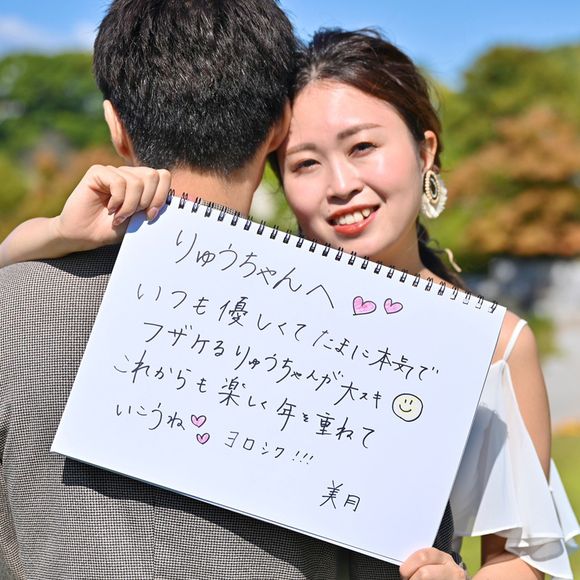 りゅうちゃんへ
いつも優しくてたまに本気で
フザケるりゅうちゃんが大スキ
これからも楽しく年を重ねて
いこうね ヨロシク!!!
美月